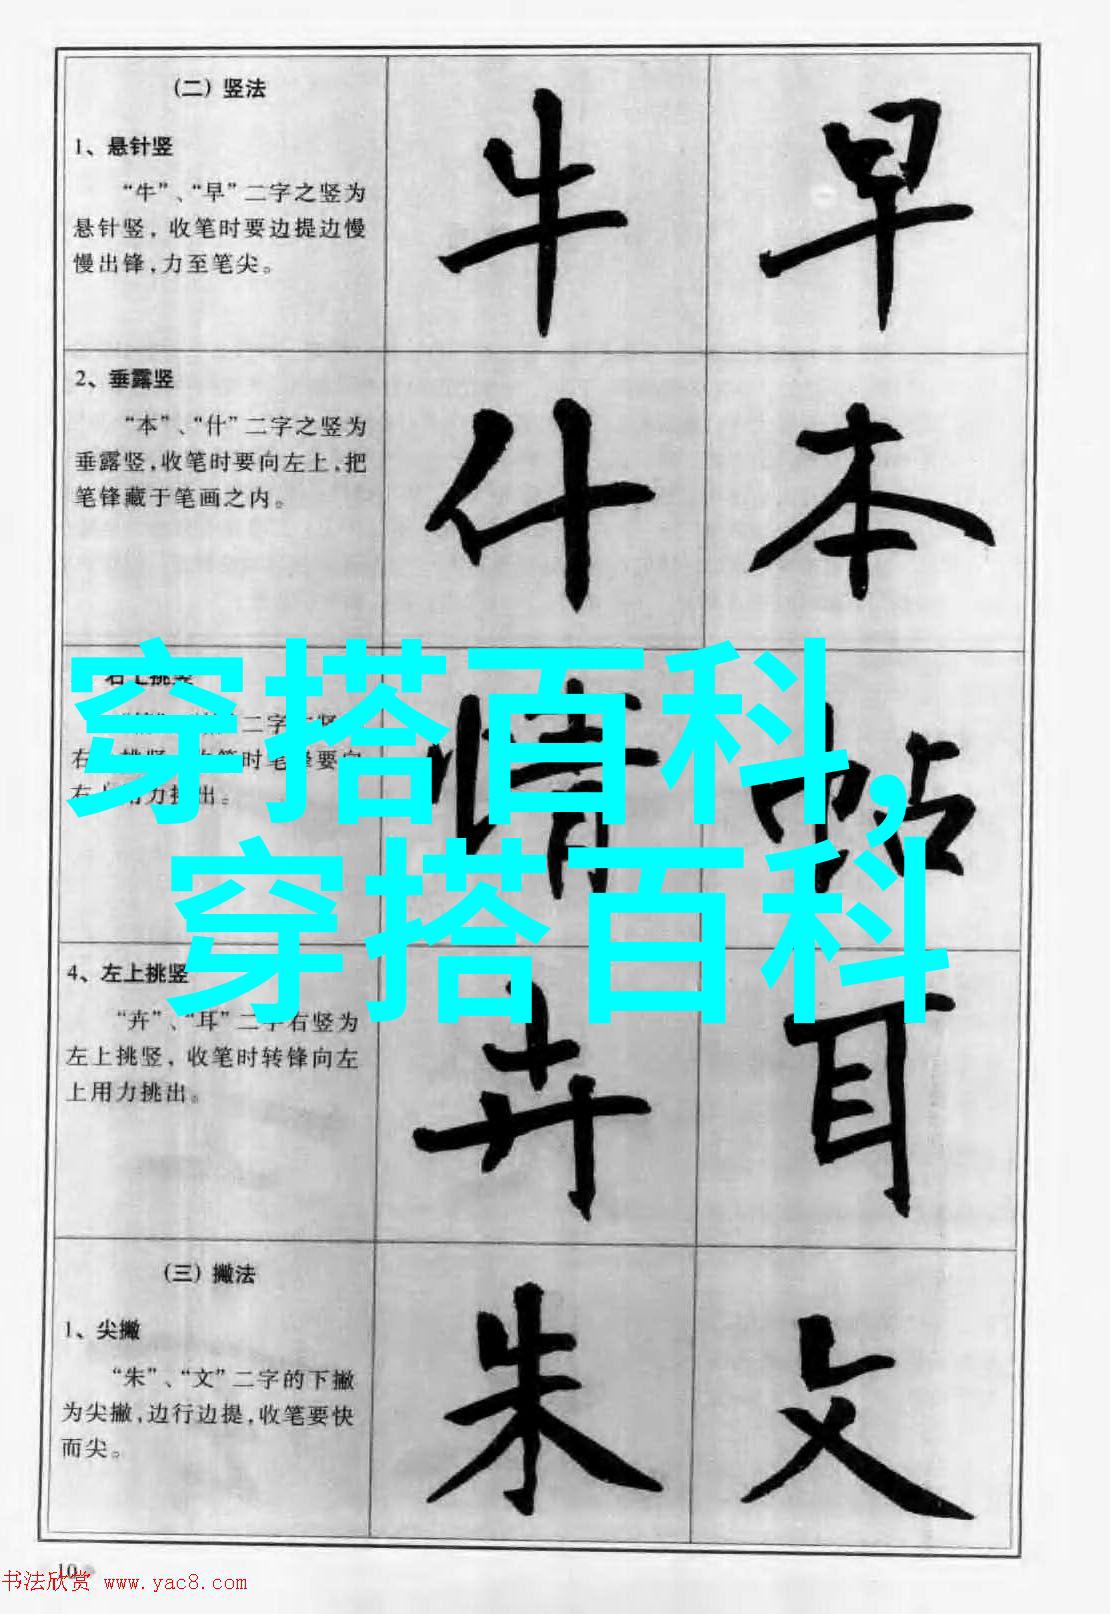 （二）竖法
1、悬针竖
“牛”、“早”二字之竖为
悬针竖，收笔时要边提边慢
慢出锋，力至笔尖。
牛 早
2、垂露竖
“本”、“什”二字之竖为
垂露竖，收笔时要向左上，把
笔锋藏于笔画之内。
什 本
右上挑竖
二字
右 挑竖 时笔锋要向
右 用力挑出。
情 帖
穿搭百科，
穿搭百科
4、左上挑竖
“卉”、“耳”二字右竖为
左上挑竖，收笔时转锋向左
上用力挑出。
卉 耳
（三）撇法
1、尖撇
“朱”、“文”二字的下撇
为尖撇，边行边提，收笔要快
而尖。
朱 文
10
书法欣赏 www.yac8.com